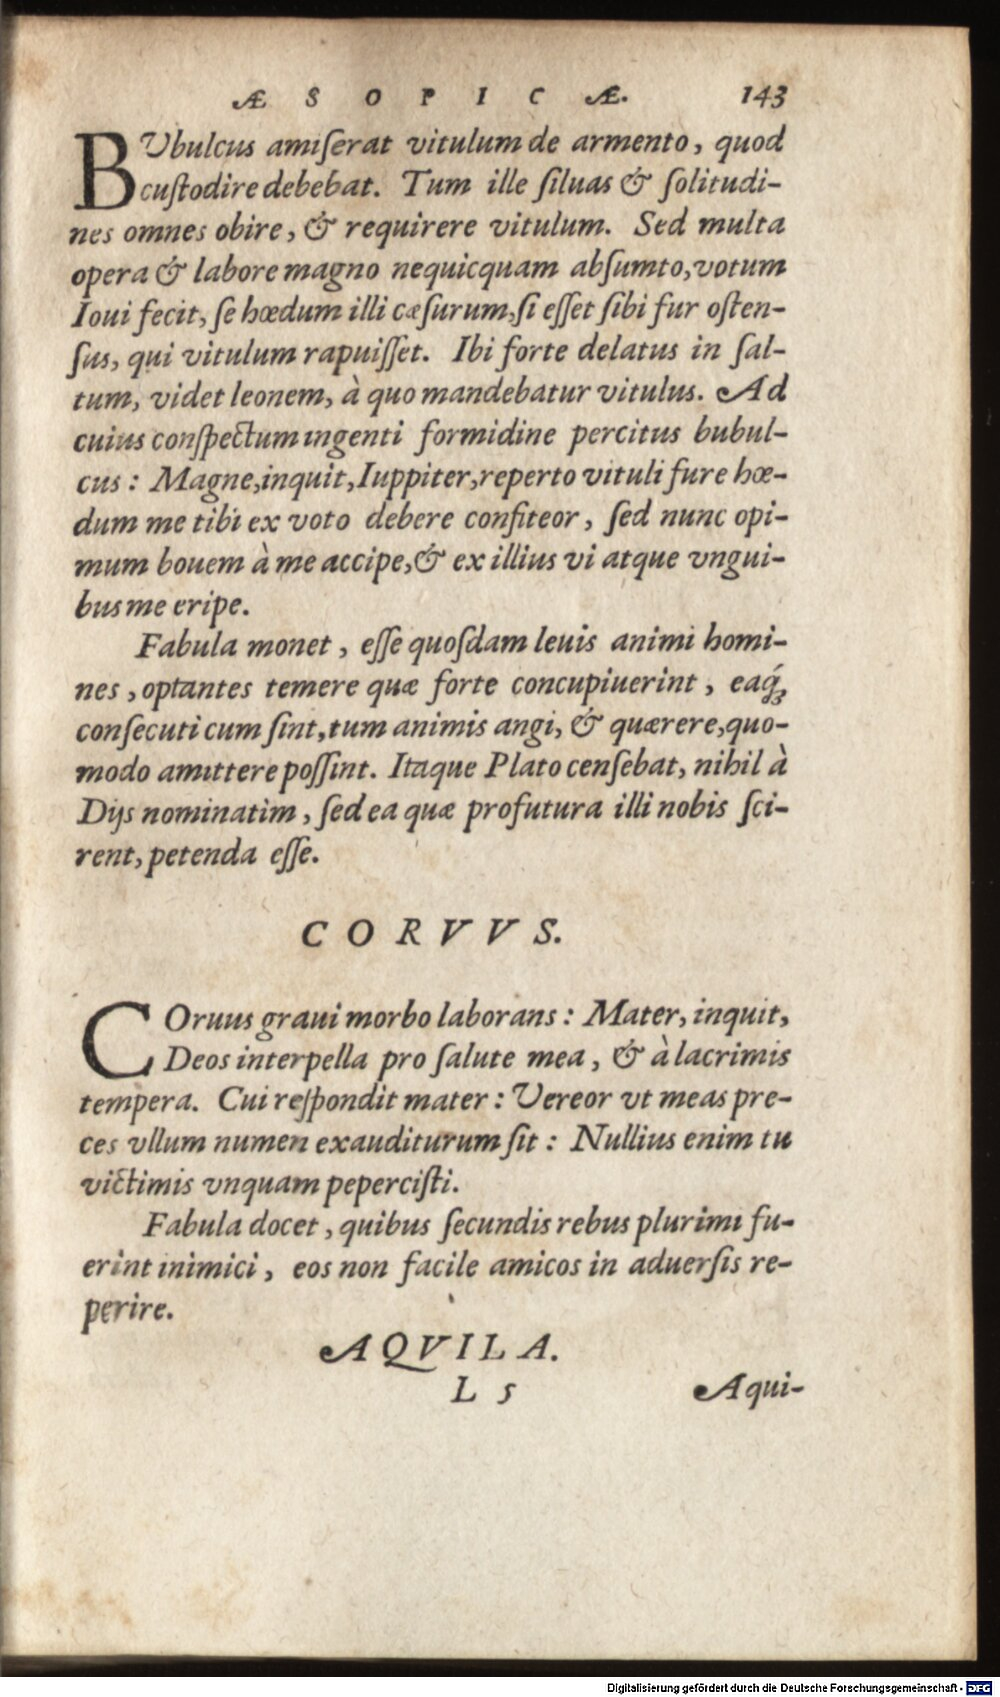 ÆSOPICÆ. 143
BVbulcus amiſerat vitulum de armento, quod
cuſtodire debebat. Tum ille ſiluas & ſolitudi-
nes omnes obire, & requirere vitulum. Sed multa
opera & labore magno nequicquam abſumto, votum
Ioui fecit, ſe hœdum illi cæſurum, ſi eſſet ſibi fur oſten-
ſus, qui vitulum rapuiſſet. Ibi forte delatus in ſal-
tum, videt leonem, à quo mandebatur vitulus. Ad
cuius conſpectum ingenti formidine percitus bubul-
cus: Magne, inquit, Iuppiter, reperto vituli fure hœ-
dum me tibi ex voto debere confiteor, ſed nunc opi-
mum bouem à me accipe, & ex illius vi atque vngui-
bus me eripe.
Fabula monet, eſſe quoſdam leuis animi homi-
nes, optantes temere quæ forte concupiuerint, eaq́;
conſecuti cum ſint, tum animis angi, & quærere, quo-
modo amittere poſſint. Itaque Plato cenſebat, nihil à
Dijs nominatim, ſed ea quæ profutura illi nobis ſci-
rent, petenda eſſe.
CORVVS.
COruus graui morbo laborans: Mater, inquit,
Deos interpella pro ſalute mea, & à lacrimis
tempera. Cui reſpondit mater: Vereor vt meas pre-
ces vllum numen exauditurum ſit: Nullius enim tu
victimis vnquam peperciſti.
Fabula docet, quibus ſecundis rebus plurimi fu-
erint inimici, eos non facile amicos in aduerſis re-
perire.
AQVILA.
L 5 Aqui-
Digitalisierung gefördert durch die Deutsche Forschungsgemeinschaft - DFG